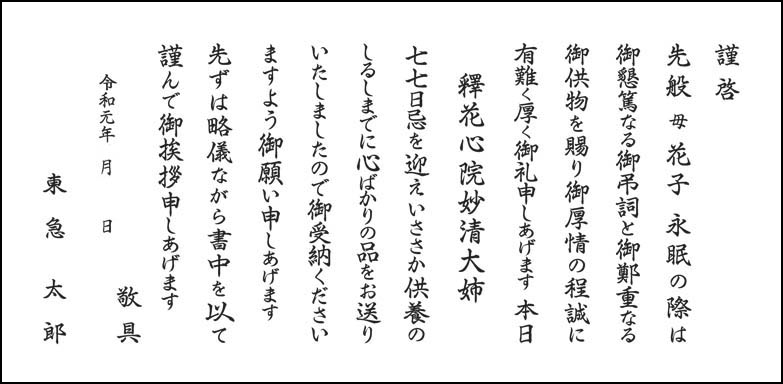 謹啓
先般 母 花子 永眠の際は
御懇篤なる御弔詞と御鄭重なる
御供物を賜り御厚情の程誠に
有難く厚く御礼申しあげます 本日
釋花心院妙清大姉
七七日忌を迎えいささか供養の
しるしまでに心ばかりの品をお送り
いたしましたので御受納ください
ますよう御願い申しあげます
先ずは略儀ながら書中を以て
謹んで御挨拶申しあげます
敬具
令和元年 月 日
東急 太郎